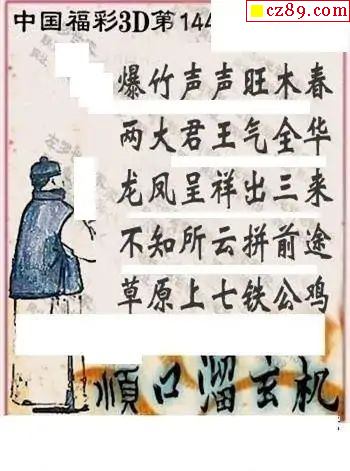 cz89.com
中国福彩3D第144
爆竹声声旺木春
两大君王气全华
龙凤呈祥出三来
不知所云拼前途
草原上七铁公鸡
顺口溜玄机